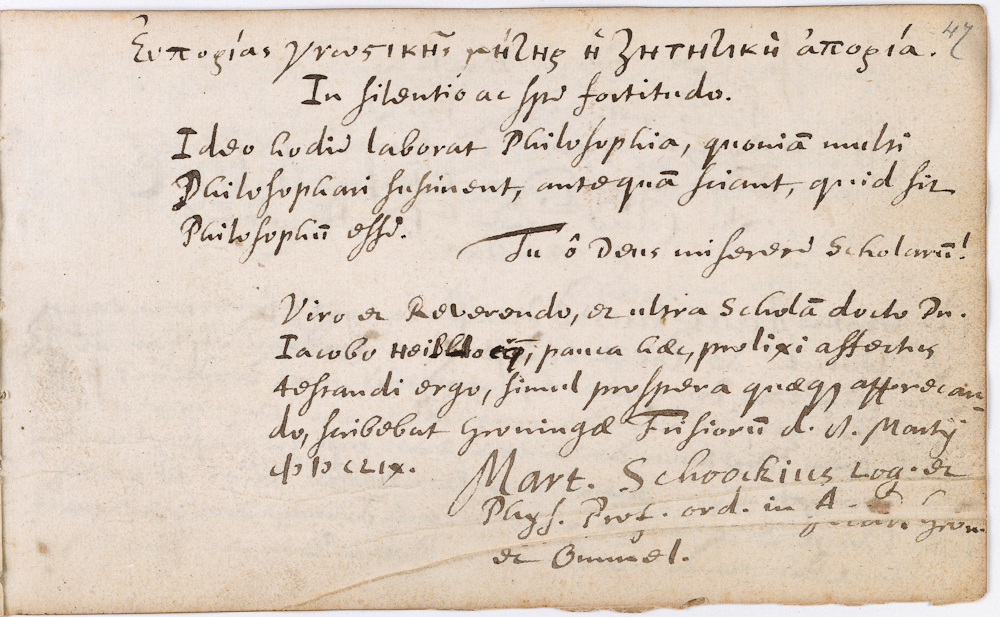 47
Ευπορίας γνωστικῆς μήτηρ ἡ ζητητικὴ ἀπορία.
In silentio ac spe fortitudo.
Ideo hodie laborat Philosophia, quoniā multi
Philosophari sustinent, antequā sciant, quid sit
Philosophū esse.
Tu ô Deus miserere Scholarū!
Viro et Reverendo, et ultra Scholā docto Dn.
Iacobo Heiblocq, pauca hæc, prolixi affectus
testandi ergo, simul prospera quæq apprecan
do, scribebat Groningæ Frisiorū d. Martij
cIɔ Iɔ CLIX.
Mart. Schoockius Log. et
Phys. Prof. ord. in A
Gron.
et Ommel.